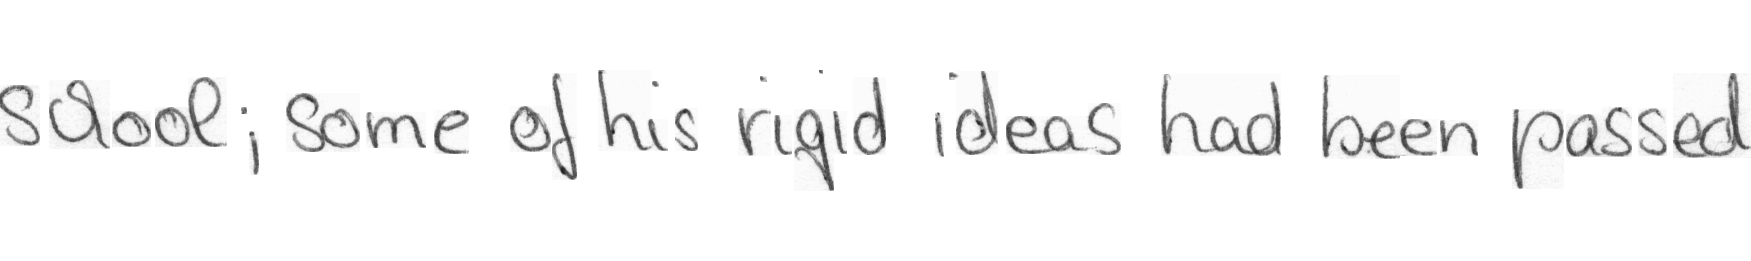 school; some of his rigid ideas had been passed